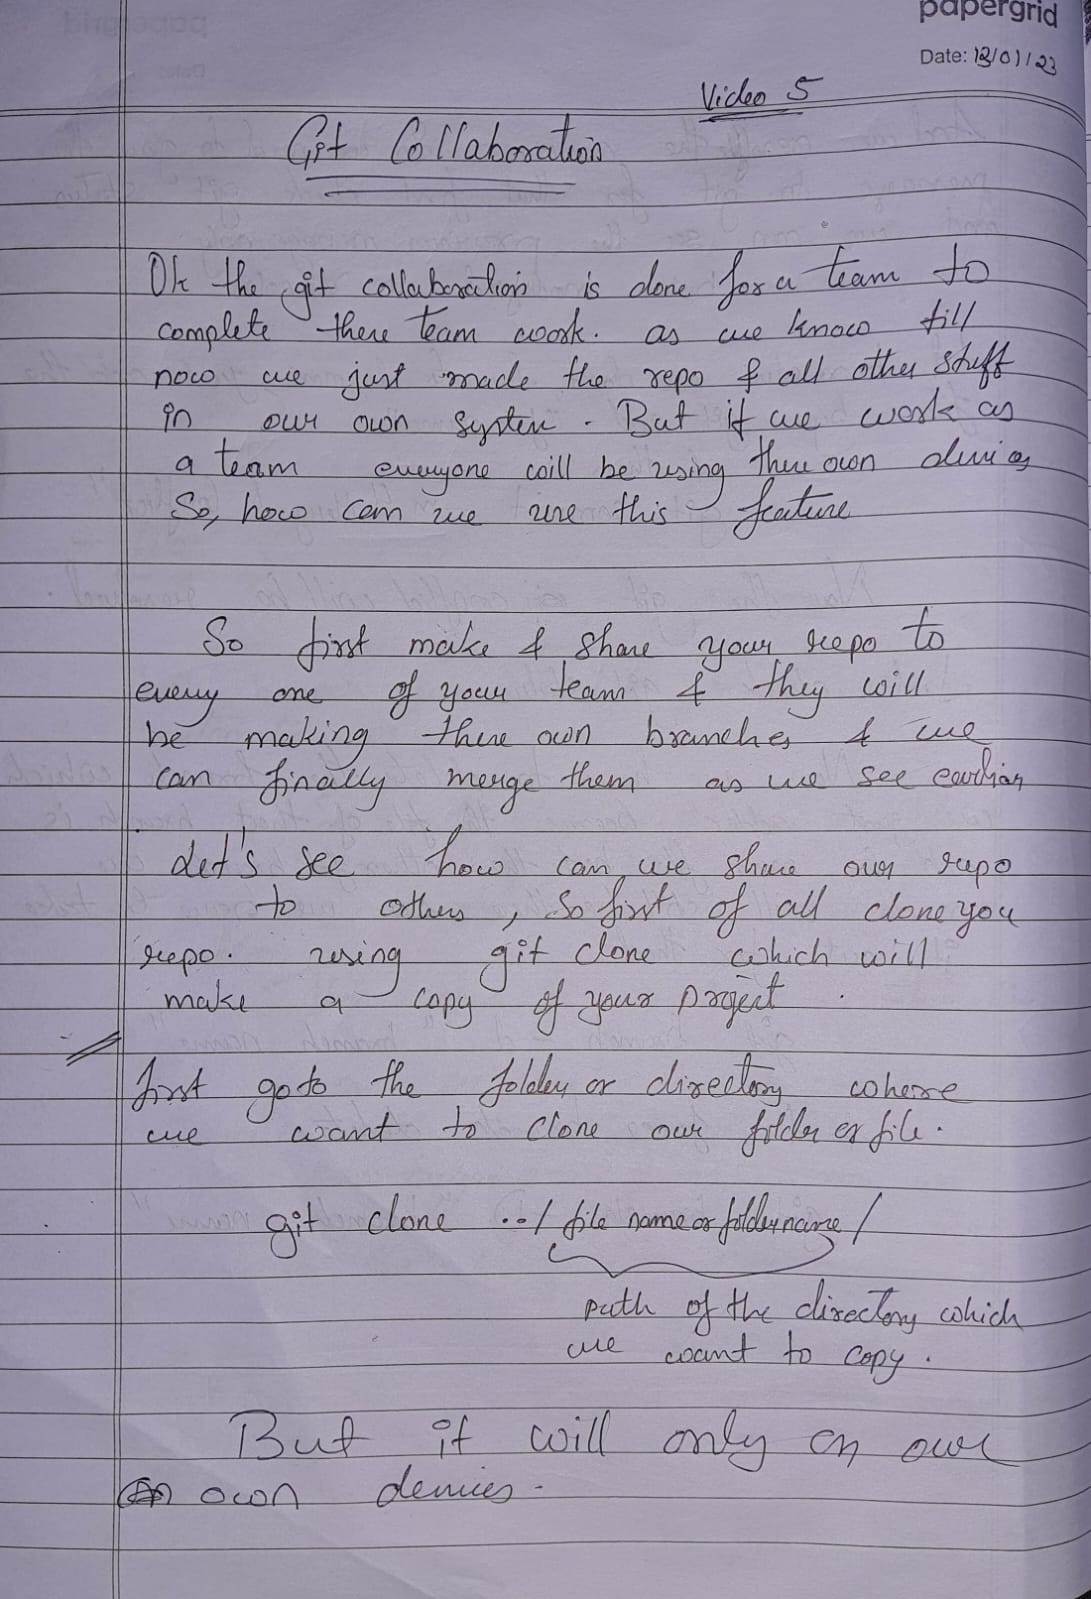 papergrid
Date: 13/01/23
Video 5
Git Collaboration
Ok the git collaboration is done for a team to
complete there team work. as we know till
now we just made the repo & all other stuff
in our own system. But if we work as
a team everyone will be using there own devices
So, how can we use this feature
So first make & share your repo to
every one of your team & they will
be making there own branches & we
can finally merge them as we see earlier
Let's see how can we share our repo
to others, so first of all clone you
repo. using git clone which will
make a copy of your project.
first go to the folder or directory where
we want to clone our folder or file.
git clone ../file name or folder name/
path of the directory which
we want to copy.
But it will only on our
own devices.